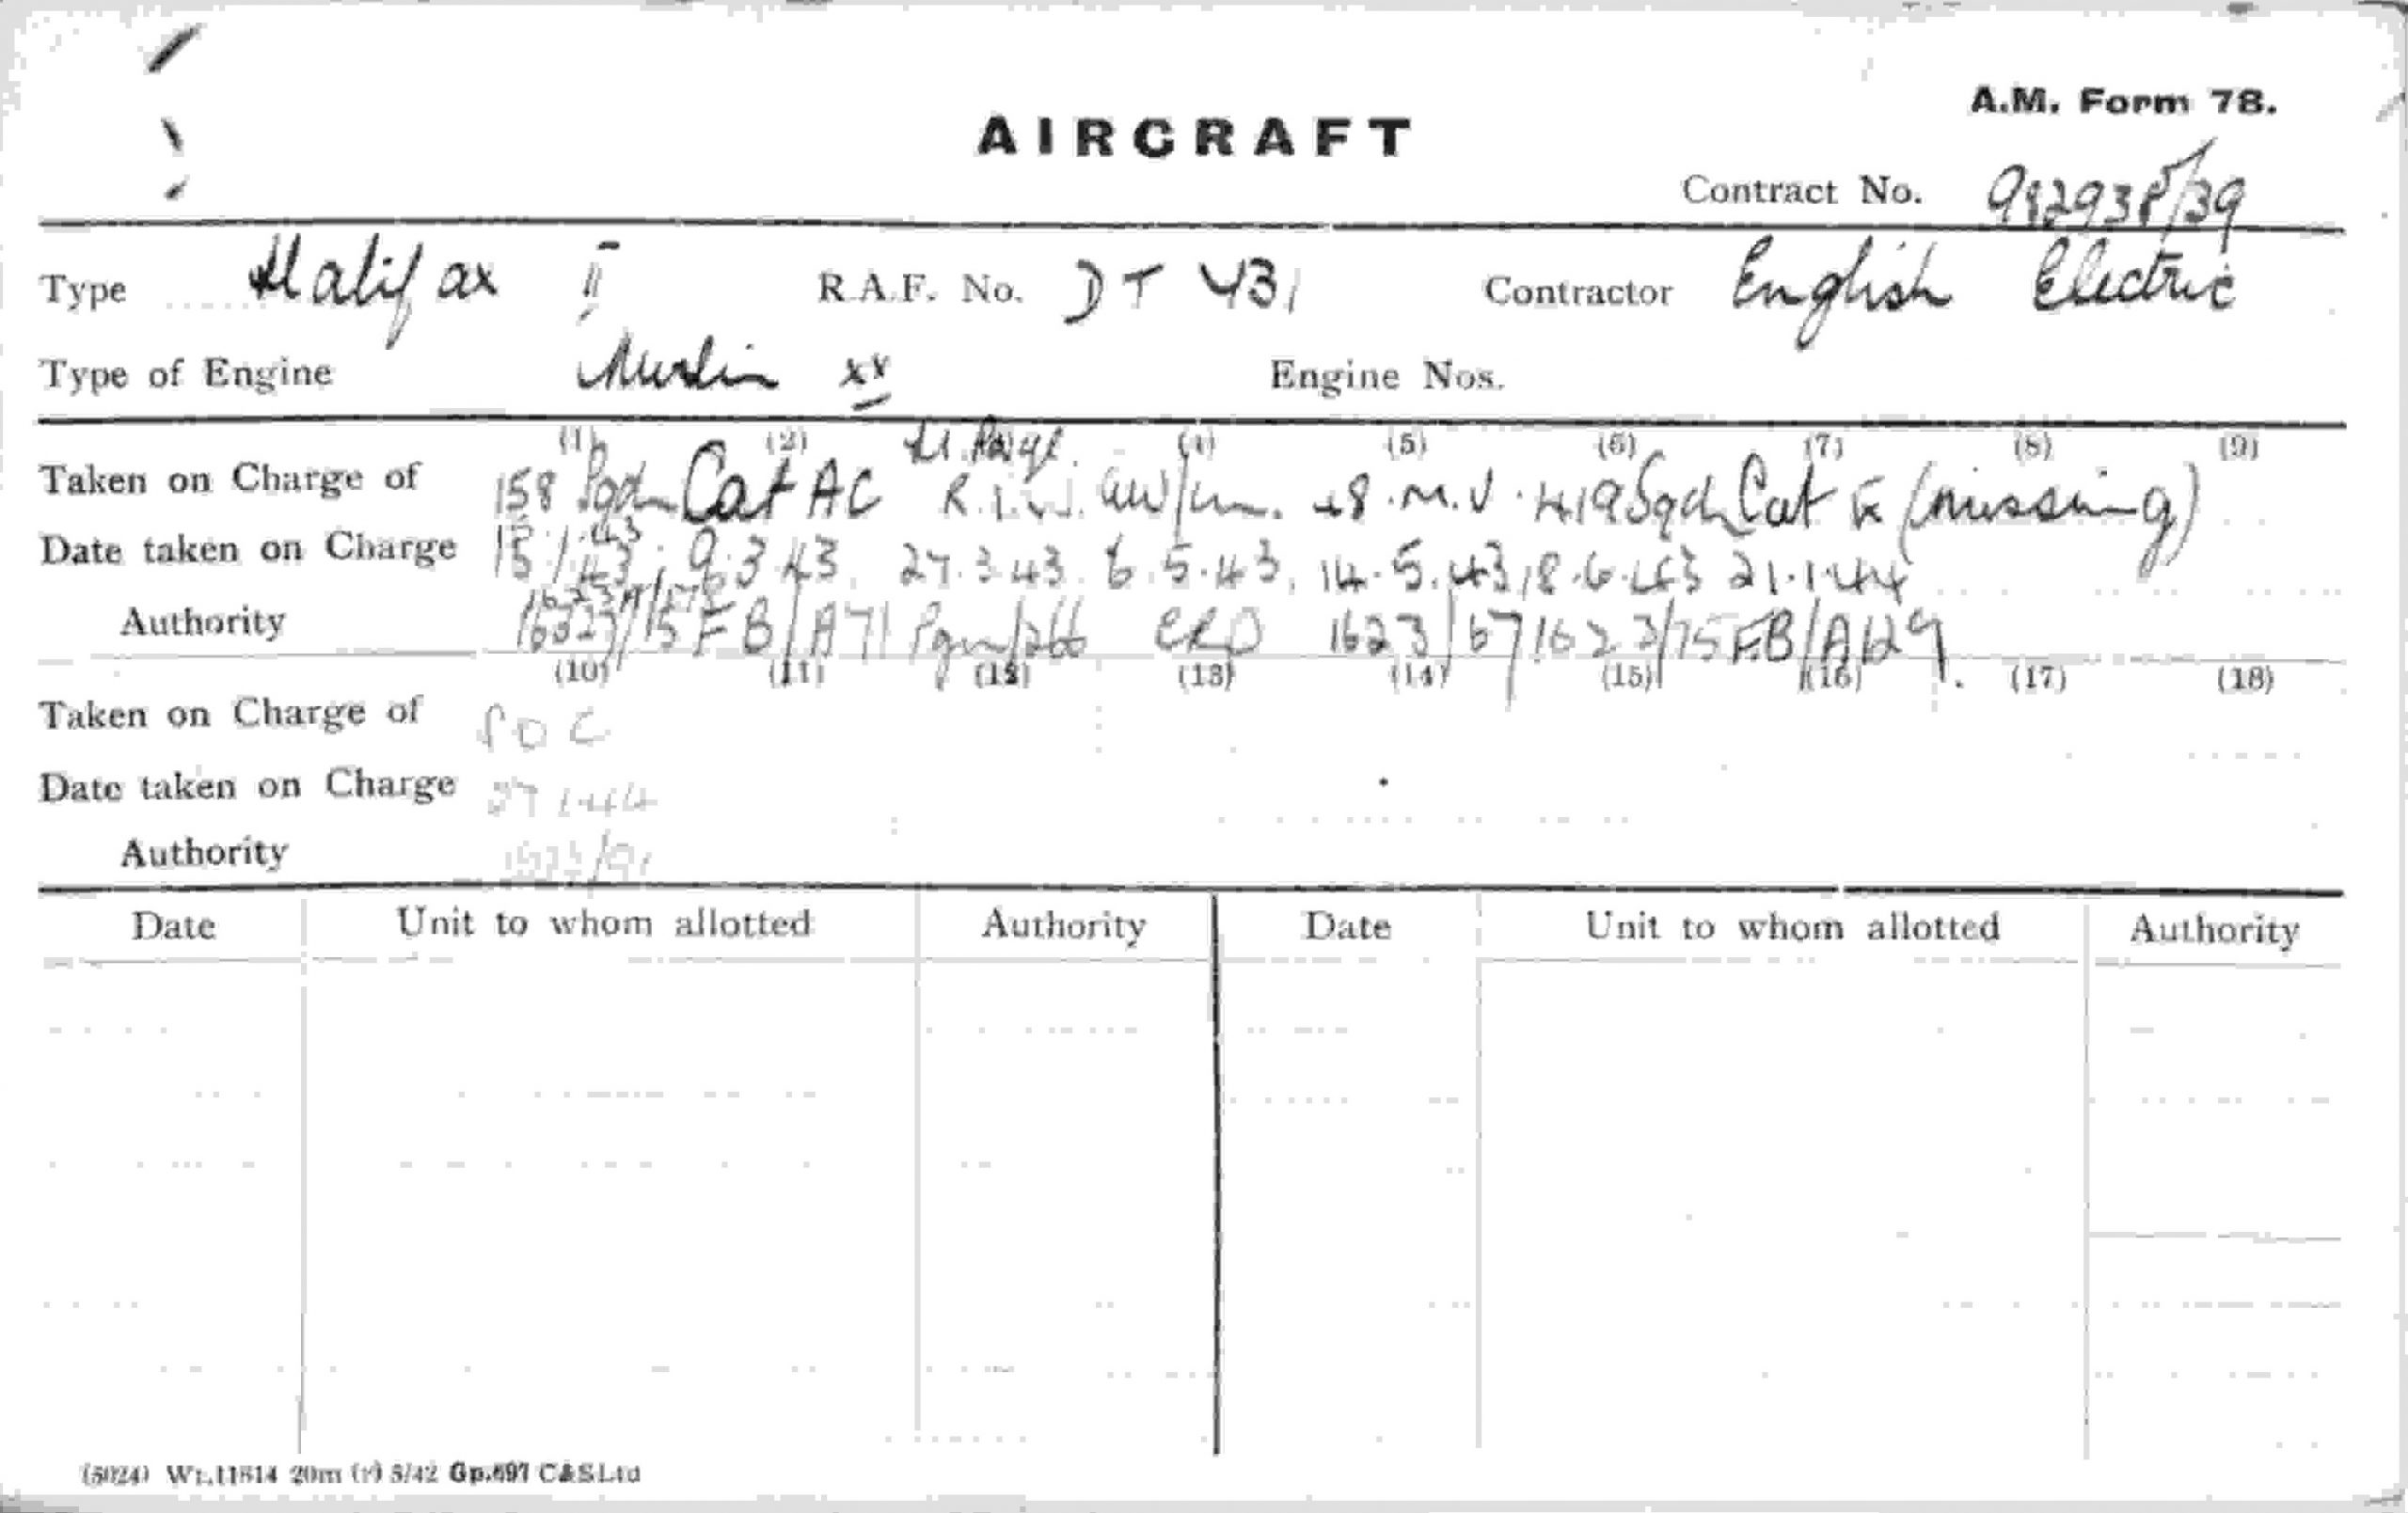 A.M. Form 78.
AIRCRAFT
Contract No. /39
Type Halifax II R.A.F. No. DT 431 Contractor English Electric
Type of Engine Merlin xx Engine Nos.
(1) (2) (4) (5) (6) (7) (8) (9)
H. Page
Taken on Charge of 158 Sqdn Cat AC R.I.W. 48 M.U. 419 Sqdn Cat E (missing)
Date taken on Charge 15.1.43 9.3.43 27.3.43 6.5.43 14.5.43 18.6.43 21.1.44
Authority FB/A71 CRD 1623/67 1623/75 FB/A129
(10) (11) (12) (13) (14) (15) (16) (17) (18)
Taken on Charge of SOC
Date taken on Charge 1.44
Authority
Date Unit to whom allotted Authority Date Unit to whom allotted Authority
(5024) Wt.11514 20m (r) 5/42 Gp.697 C&S Ltd